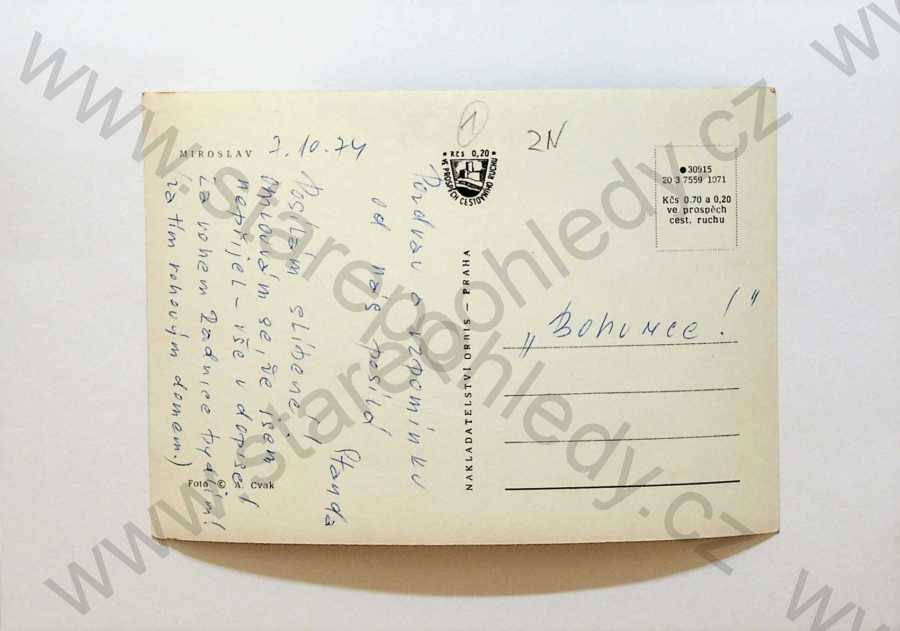 MIROSLAV 7.10.74
Pozdrav a vzpomínku
od nás posílá
Standa
Posílám slíbené!!
Omlouvám se, že jsem
nepřijel – vše v dopise!
Za rohem Radnice bydlím!
(za tím rohovým domem.)
Foto © A. Cvak
1
2N
KČS 0,20
VE PROSPĚCH CESTOVNÍHO RUCHU
NAKLADATELSTVÍ ORBIS – PRAHA
30915
20 3 7559 1971
Kčs 0.70 a 0,20
ve prospěch
cest. ruchu
„Bohunce!"
www.starepohledy.cz
www.starepohledy.cz